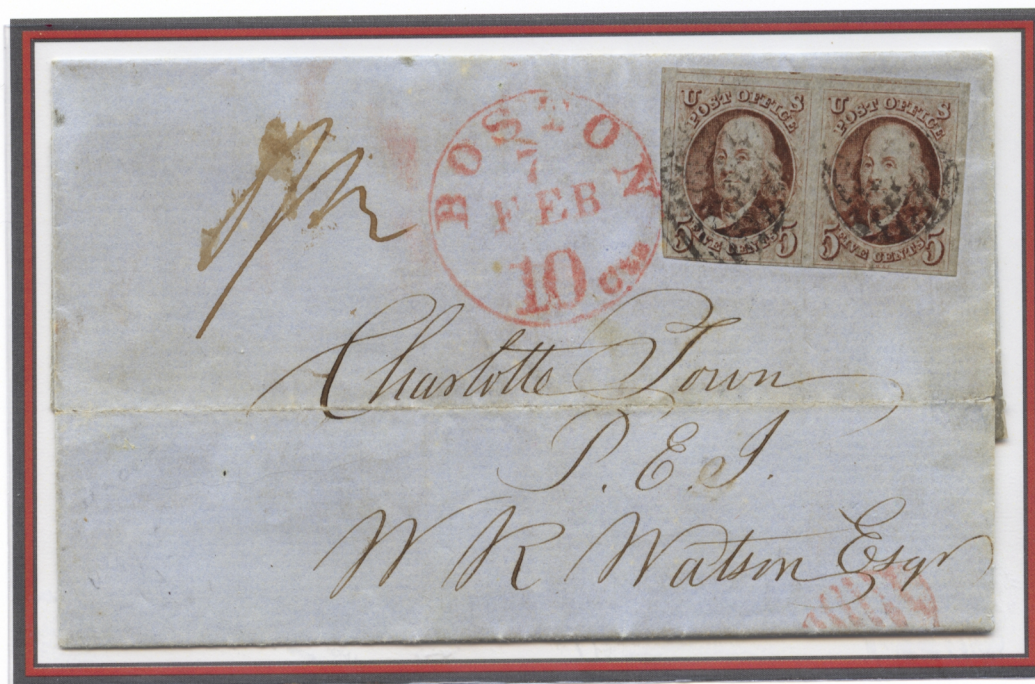 BOSTON
7
FEB
10 cts
U S
POST OFFICE
5 FIVE CENTS 5
U S
POST OFFICE
5 FIVE CENTS 5
Charlotte Town
P. E. I.
W R Watson Esqr